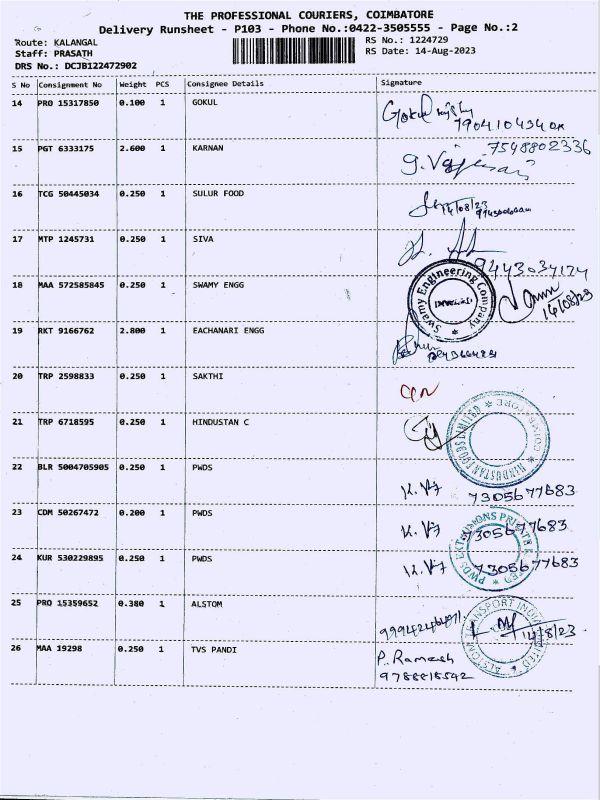 THE PROFESSIONAL COURIERS, COIMBATORE
Delivery Runsheet - P103 - Phone No.:0422-3505555 - Page No.:2
Route: KALANGAL
Staff: PRASATH
DRS No.: DCJB122472902
RS No.: 1224729
RS Date: 14-Aug-2023
S No Consignment No Weight PCS Consignee Details Signature
14 PRO 15317850 0.100 1 GOKUL
Gokul
15 PGT 6333175 2.600 1 KARNAN 7548802336
16 TCG 50445034 0.250 1 SULUR FOOD
14/08/23
17 MTP 1245731 0.250 1 SIVA
18 MAA 572585845 0.250 1 SWAMY ENGG
Swamy Engineering Company
14/08/23
19 RKT 9166762 2.800 1 EACHANARI ENGG
20 TRP 2598833 0.250 1 SAKTHI
21 TRP 6718595 0.250 1 HINDUSTAN C
HINDUSTAN FOODS LIMITED
COIMBATORE
22 BLR 5004705905 0.250 1 PWDS
7305677683
23 CDM 50267472 0.200 1 PWDS
7305677683
24 KUR 530229895 0.250 1 PWDS
7305677683
25 PRO 15359652 0.380 1 ALSTOM
14/8/23
26 MAA 19298 0.250 1 TVS PANDI
P. Ramesh
9788818542